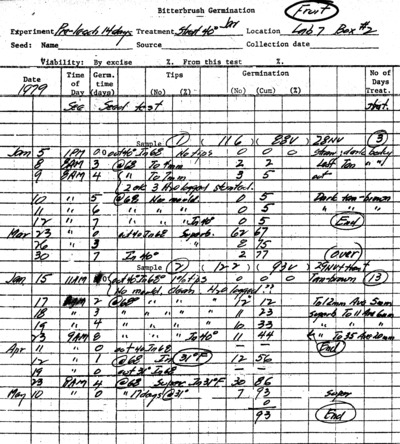 Bitterbrush Germination
Fruit
Experiment Pre-leach 14 days Treatment Strat 40° Jar Location Lab 7 Box #2
Seed: Name Source Collection date
Viability: By excise %. From this test %.
Date Time of Day Germ. time (days) Tips Germination No of Days Treat.
1979 (No) (%) (No) (Cum) (%)
See Seed test strat.
Sample 1 116 83V 28NV 3
Jan 5 1PM 0 out 40° In 68 No tips 0 0 0
8 8AM 3 @68 To 9mm 2 2
9 8AM 4 " To 7mm 3 5 out
10 " 5 @68 No mold. 0 5 Dark tan-brown
11 " 6 " " " 0 5 " " "
12 " 7 " " In 40° 0 5 End
Mar 23 " 0 out 40 In 68 Superb. 62 67
26 " 3 " 8 75
30 " 7 In 40° 2 77 (over)
Sample 2 122 93V 29NV 13
Jan 15 11AM 0 out 40 In 68° 1% tips 0 0 0 Tan-brown
No mold, clean. H2O logged.
17 2 @68° " " " 12 12 To 12mm Ave 5mm
18 " 3 " " " " 11 23 superb To 11 Ave 6mm
19 " 4 " " " " 10 33 " "
23 9AM 8 " " " To 40° 11 44 " To 35 Ave 20mm
Apr 11 " 0 out 40 In 68 End
12 " 1 @68 In 31°F 12 56
19 " 0 out 31° In 68
23 8AM 4 @68 Super In 31°F 30 86
May 10 " 0 " 17 days @31° 7 93 Super
0
93 End